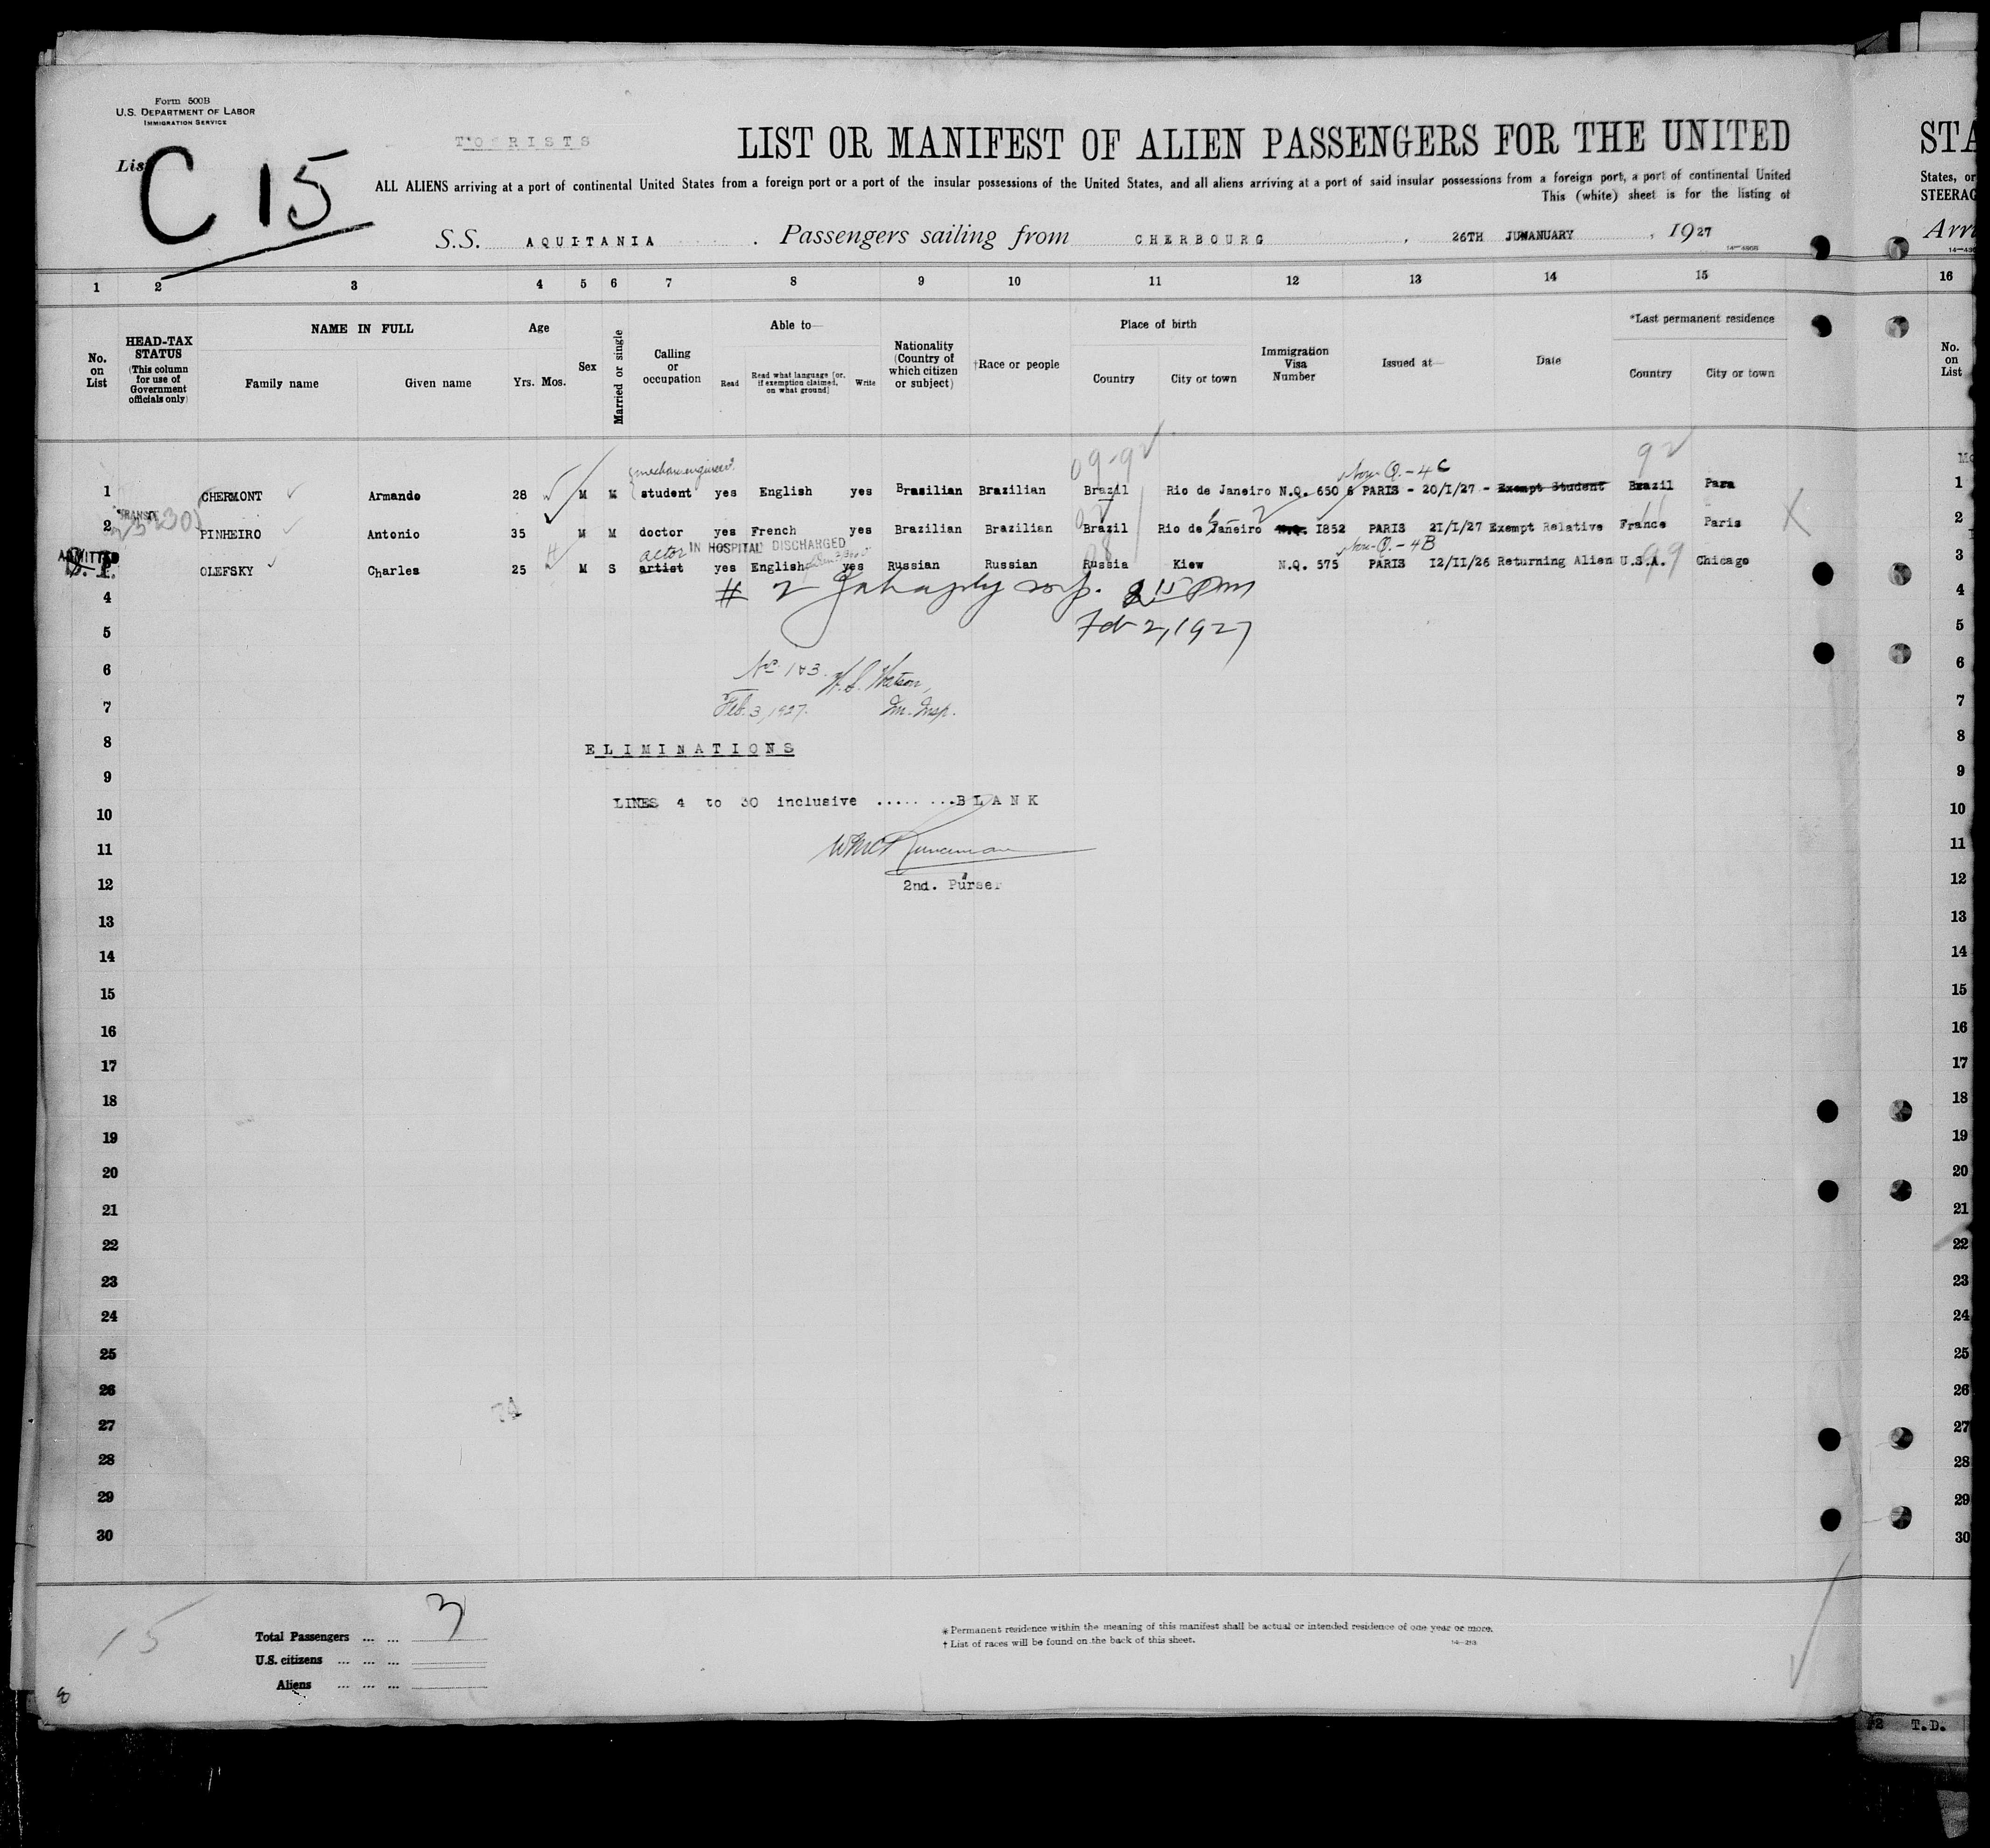 Form 500B
U.S. DEPARTMENT OF LABOR
IMMIGRATION SERVICE
TOURISTS
List
C 15
LIST OR MANIFEST OF ALIEN PASSENGERS FOR THE UNITED
STA
ALL ALIENS arriving at a port of continental United States from a foreign port or a port of the insular possessions of the United States, and all aliens arriving at a port of said insular possessions from a foreign port, a port of continental United
States, or
This (white) sheet is for the listing of
STEERAG
S.S. AQUITANIA . Passengers sailing from CHERBOURG , 26TH JUWANUARY , 1927
Arri
1 2 3 4 5 6 7 8 9 10 11 12 13 14 15 16
No. on List
HEAD-TAX STATUS (This column for use of Government officials only)
NAME IN FULL
Family name Given name
Age
Yrs. Mos.
Sex
Married or single
Calling or occupation
Able to—
Read
Read what language [or, if exemption claimed, on what ground]
Write
Nationality (Country of which citizen or subject)
†Race or people
Place of birth
Country City or town
Immigration Visa Number
Issued at—
Date
*Last permanent residence
Country City or town
No. on List
09-92
92
Non-Q.-4C
1 CHERMONT Armando 28 M M student yes English yes Brasilian Brazilian Brazil Rio de Janeiro N.Q. 650 6 PARIS - 20/I/27 - Exempt Student Brazil Para 1
TRANSIT
2 PINHEIRO Antonio 35 M M doctor yes French yes Brazilian Brazilian Brazil Rio de Janeiro N.Q. I852 PARIS 2I/I/27 Exempt Relative France Paris 2
ADMITTED
actor IN HOSPITAL DISCHARGED
Non-Q.-4B
3 OLEFSKY Charles 25 M S artist yes English yes Russian Russian Russia Kiew N.Q. 575 PARIS I2/II/26 Returning Alien U.S.A. 99 Chicago 3
# 2 2 15 PM
Feb 2, 1927
4 4
5 5
6 6
No 183. W.S. Watson,
7 Feb. 3, 1927. Im. Insp. 7
8 ELIMINATIONS 8
9 9
10 LINES 4 to 30 inclusive ........BLANK 10
11 11
12 2nd. Purser 12
13 13
14 14
15 15
16 16
17 17
18 18
19 19
20 20
21 21
22 22
23 23
24 24
25 25
26 26
74
27 27
28 28
29 29
30 30
15
Total Passengers ... ... 3
U.S. citizens ... ... ...
Aliens ... ... ...
* Permanent residence within the meaning of this manifest shall be actual or intended residence of one year or more.
† List of races will be found on the back of this sheet.
8
T.D.